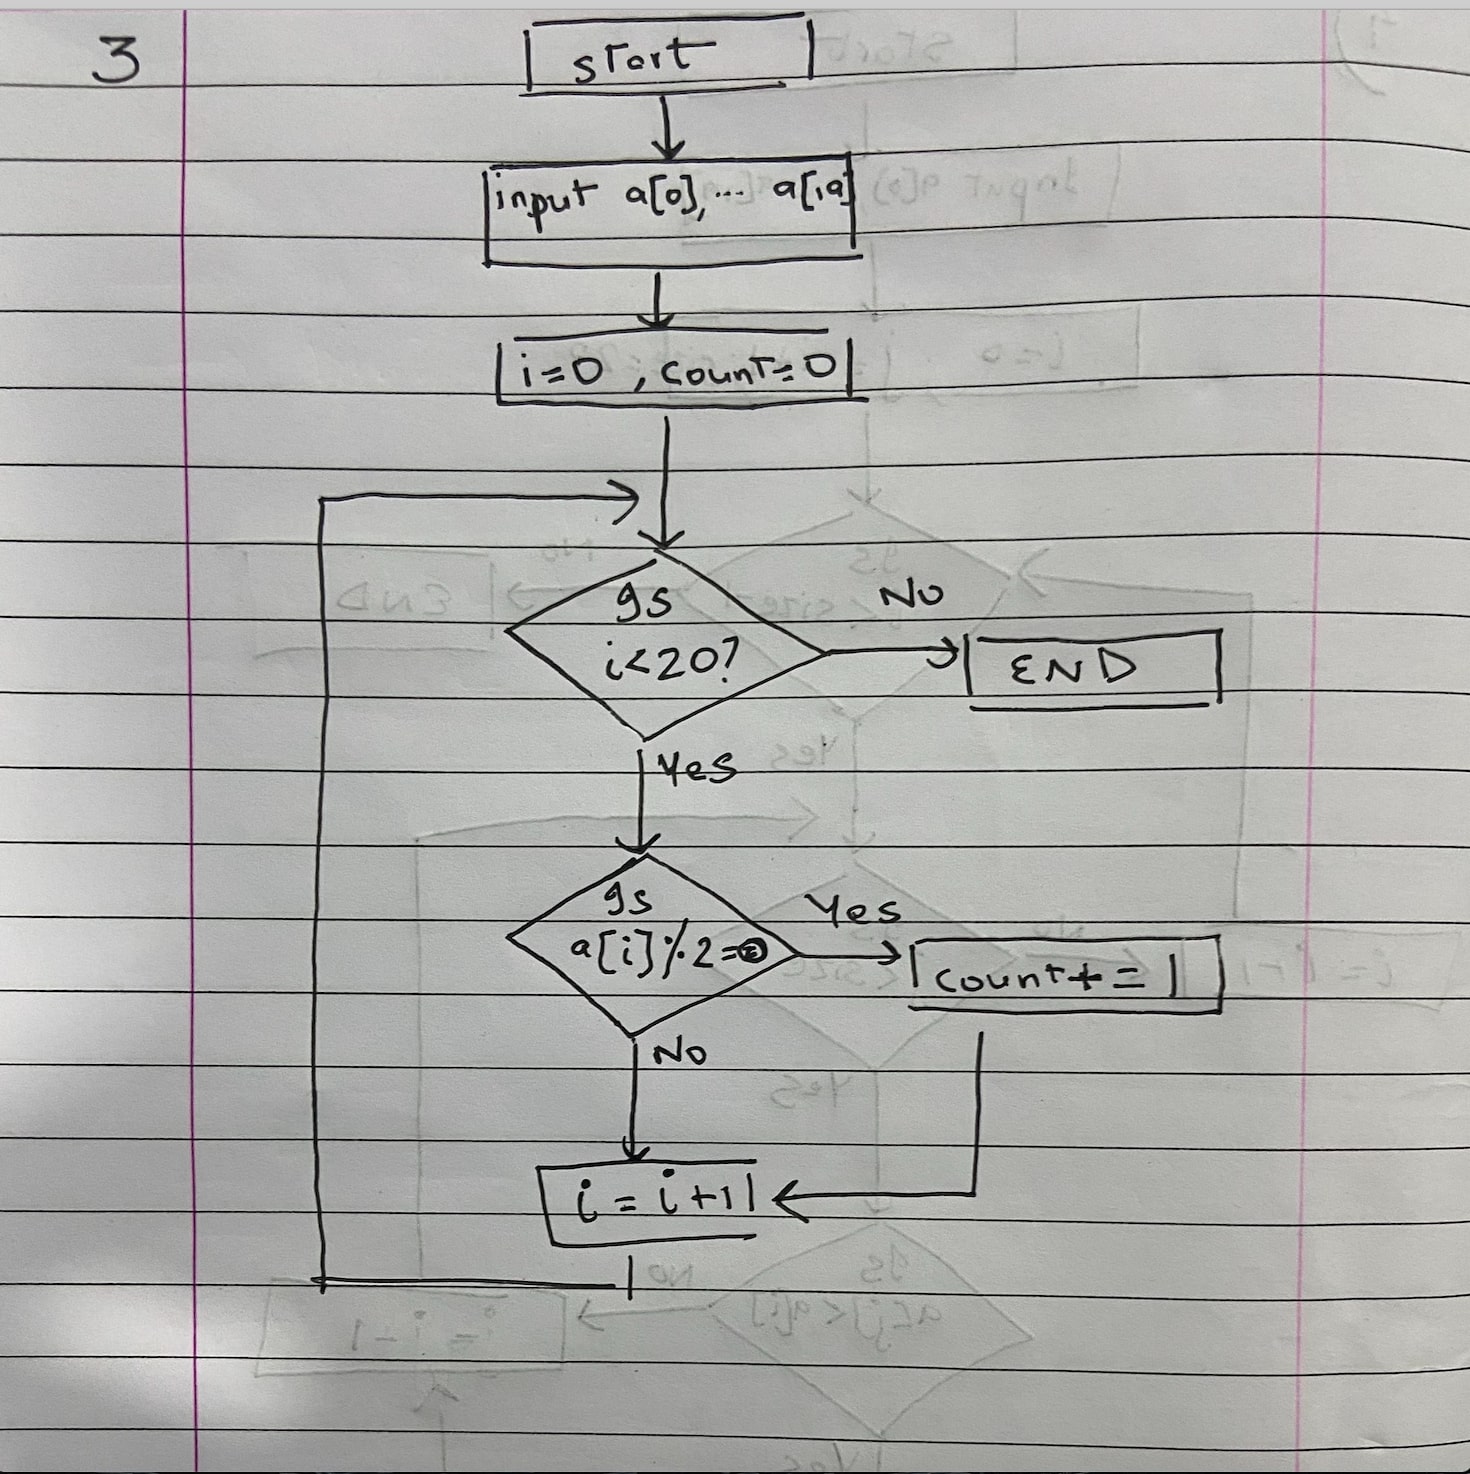 3
start
input a[0],... a[19]
i=0 , count=0
Is
i<20?
No
END
Yes
Is
a[i]%2=
Yes
count+=1
No
i=i+1